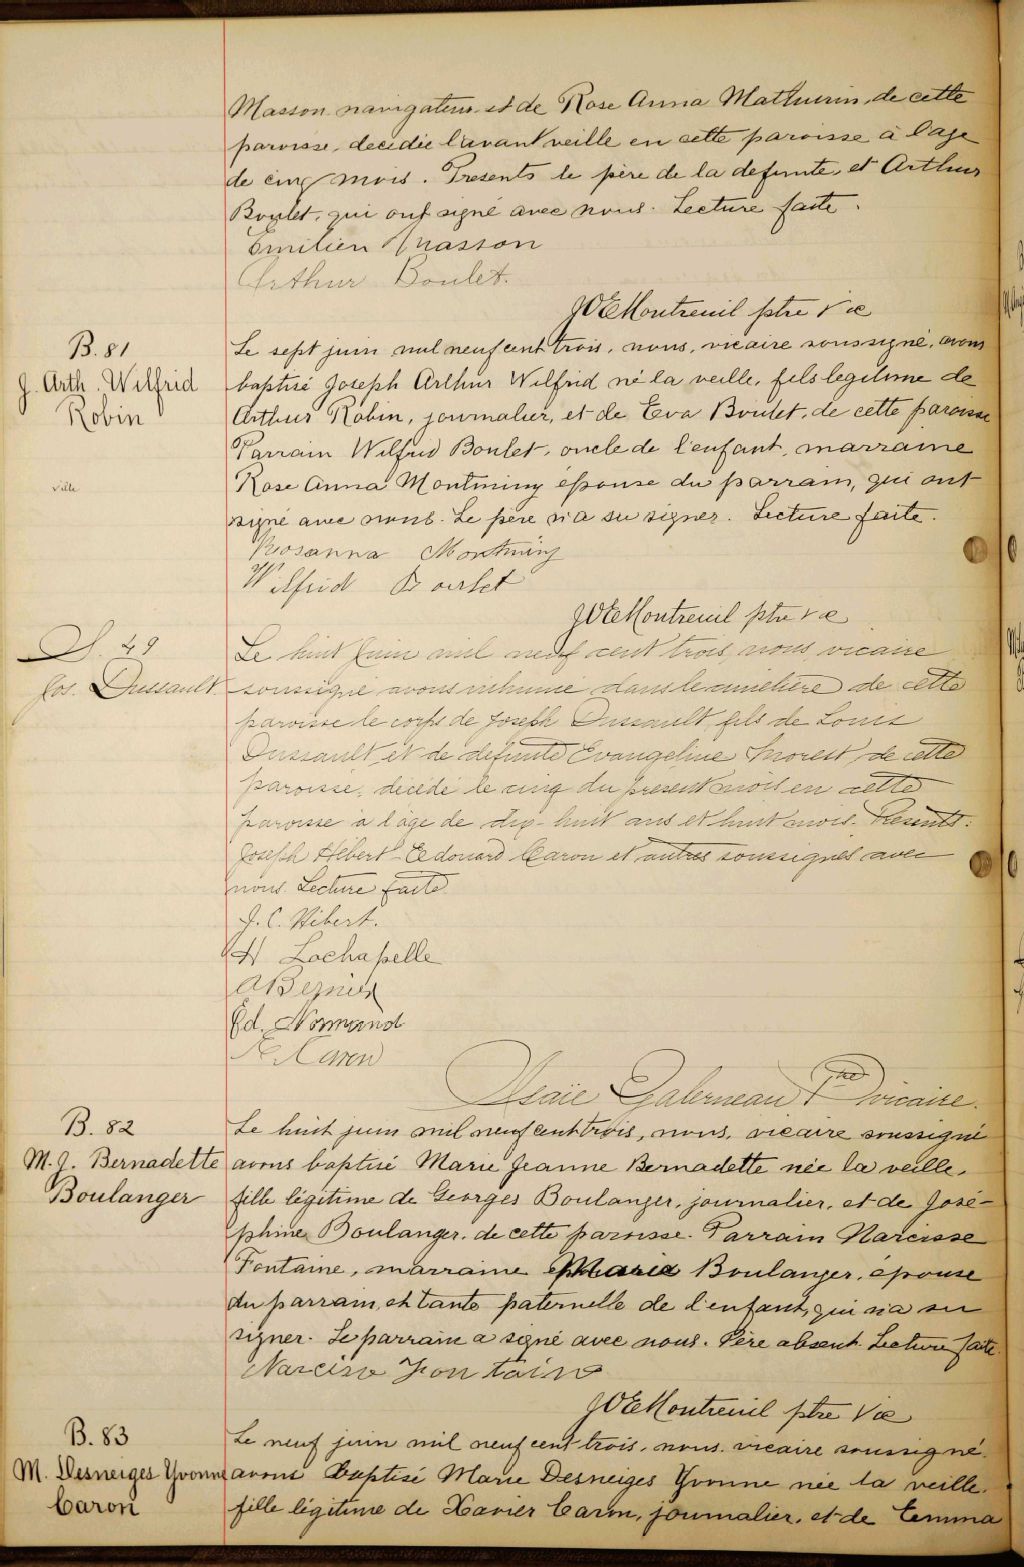 Masson navigateur et de Rose Anna Mathurin, de cette
paroisse, decédée l'avant veille en cette paroisse à l'age
de cinq mois. Presents le père de la defunte, et Arthur
Boulet, qui ont signé avec nous. Lecture faite.
Emilien Masson
Arthur Boulet.
JOEMontreuil ptre Vic
B. 81
J. Arth. Wilfrid
Robin
ville
Le sept juin mil neuf cent trois, nous, vicaire soussigné, avons
baptisé Joseph Arthur Wilfrid né la veille, fils legitime de
Arthur Robin, journalier, et de Eva Boulet, de cette paroisse
Parrain Wilfrid Boulet, oncle de l'enfant, marraine
Rose Anna Montminy épouse du parrain, qui ont
signé avec nous. Le père n'a su signer. Lecture faite.
Rosanna Montminy
Wilfrid Boulet
JOEMontreuil ptre Vic
S. 49
Jos. Dussault
Le huit juin mil neuf cent trois, nous, vicaire
soussigné avons inhumé dans le cimetière de cette
paroisse le corps de Joseph Dussault, fils de Louis
Dussault, et de défunte Evangeline de cette
paroisse, décédé le cinq du présent mois en cette
paroisse à l'âge de dix-huit ans et huit mois. Présents:
Joseph Hébert - Edouard Caron et autres soussignés avec
nous. Lecture faite.
J. C. Hébert.
H Lachapelle
A Bernier
Ed. Normand
E. Caron
Isaïe Galerneau Ptre vicaire.
B. 82
M. J. Bernadette
Boulanger
Le huit juin mil neuf cent trois, nous, vicaire soussigné
avons baptisé Marie Jeanne Bernadette née la veille,
fille légitime de Georges Boulanger, journalier, et de José-
phine Boulanger, de cette paroisse. Parrain Narcisse
Fontaine, marraine Maria Boulanger, épouse
du parrain, et tante paternelle de l'enfant, qui n'a su
signer. Le parrain a signé avec nous. Père absent. Lecture faite.
Narcisse Fontaine
JOEMontreuil ptre Vic
B. 83
M. Desneiges Yvonne
Caron
Le neuf juin mil neuf cent trois, nous, vicaire soussigné,
avons baptisé Marie Desneiges Yvonne née la veille,
fille légitime de Xavier Caron, journalier, et de Emma